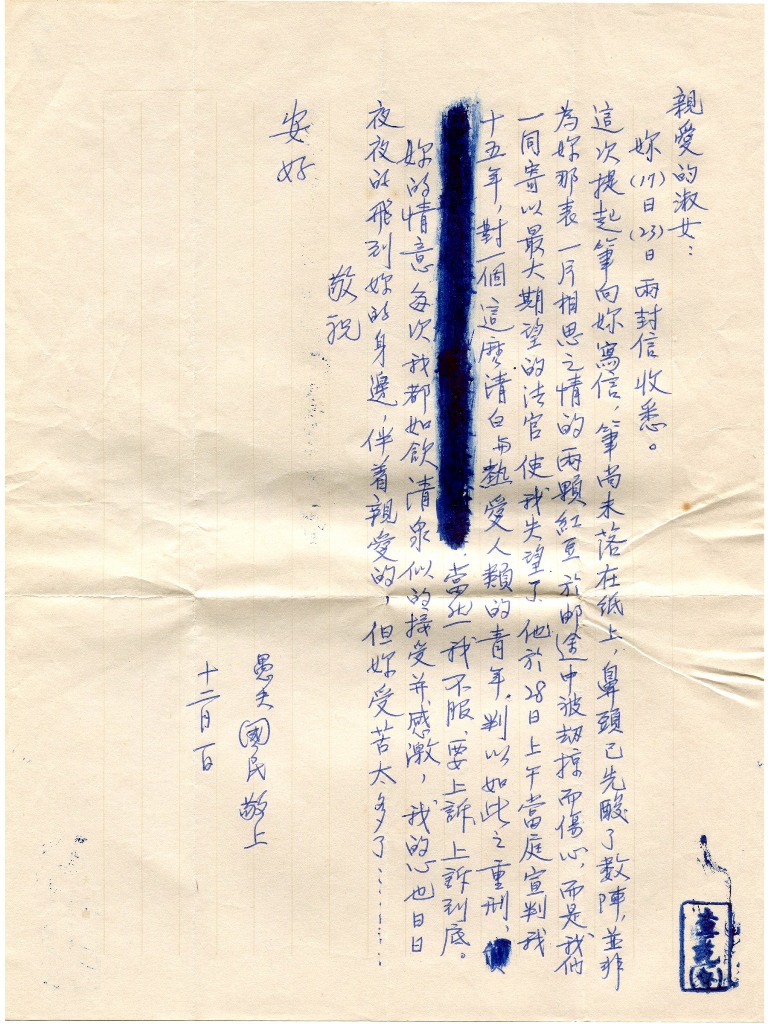 親愛的淑女：
妳(17)日(23)日兩封信收悉。
這次提起筆向妳寫信，筆尚未落在紙上，鼻頭已先酸了數陣，並非
為妳那表一片相思之情的兩顆紅豆於郵途中被劫掠而傷心，而是我們
一同寄以最大期望的法官使我失望了。他於28日上午當庭宣判我
十五年，對一個這麼清白與熱愛人類的青年，判以如此之重刑、
當然我不服，要上訴，上訴到底。
妳的情意每次我都如飲清泉似的接受并感激，我的心也日日
夜夜的飛到妳的身邊，伴着親愛的，但妳受苦太多了…………
敬祝
安好
愚夫國民敬上
十二月一日